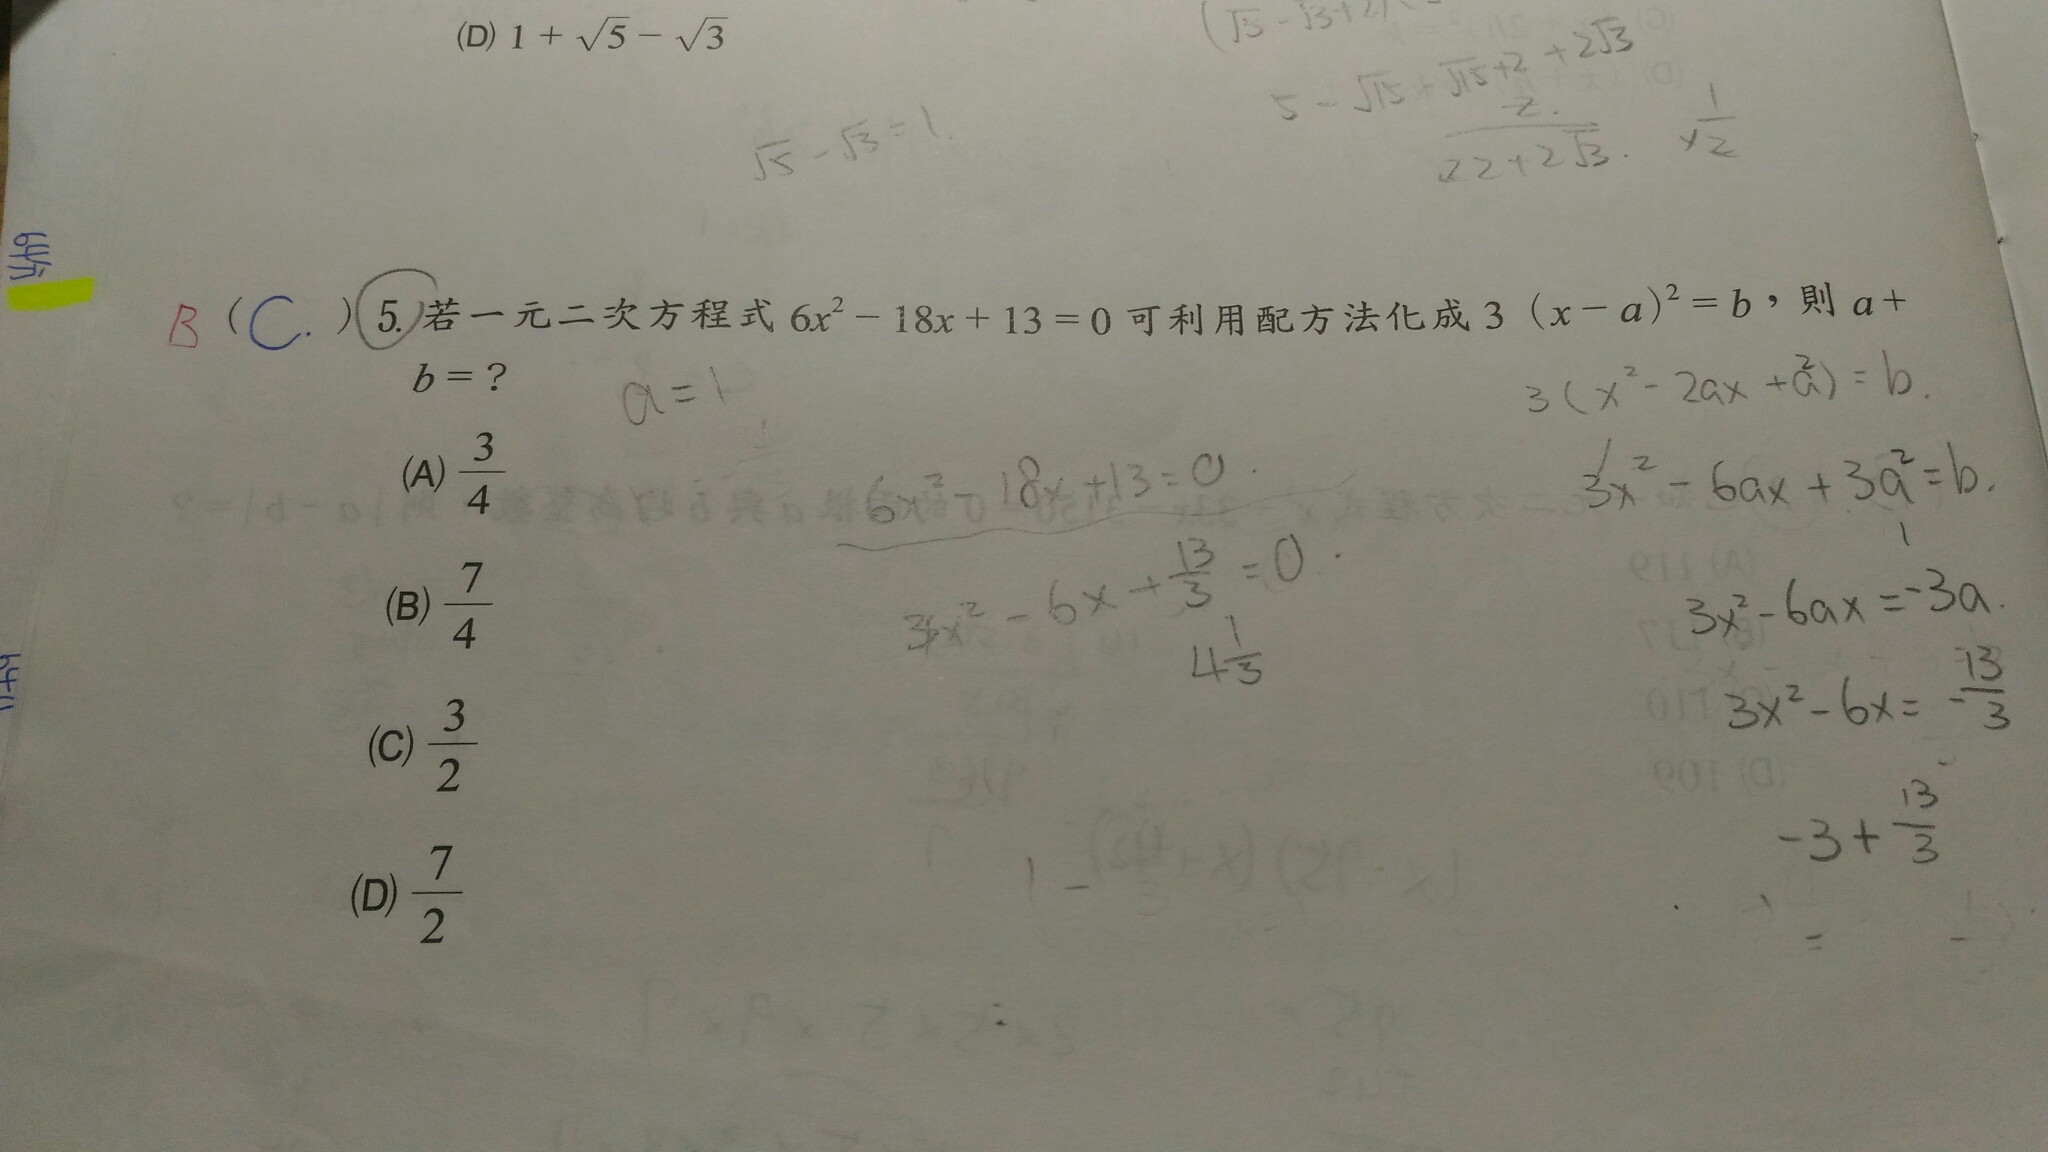 (D) 1 + √5 − √3
5 − √15 + √15 + 2 + 2√3
√5 − √3 = 1.
22 + 2√3.
B ( C. ) 5. 若一元二次方程式 6x² − 18x + 13 = 0 可利用配方法化成 3 (x − a)² = b，則 a +
b = ?
a = 1
3(x² − 2ax + a²) = b.
(A) 3/4
6x² − 18x + 13 = 0.
3x² − 6ax + 3a² = b.
(B) 7/4
3x² − 6x + 13/3 = 0.
4 1/3
3x² − 6ax = −3a.
(C) 3/2
3x² − 6x = −13/3
−3 + 13/3
(D) 7/2